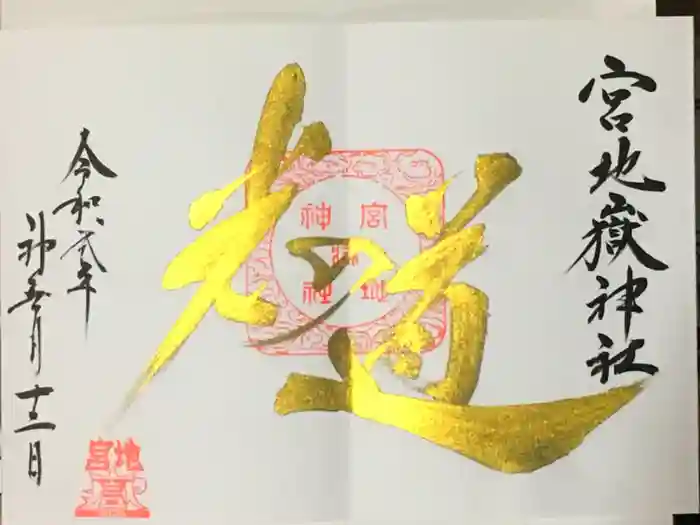 宮地嶽神社
光の道
宮地嶽神社
令和元年
神無月十三日
宮地